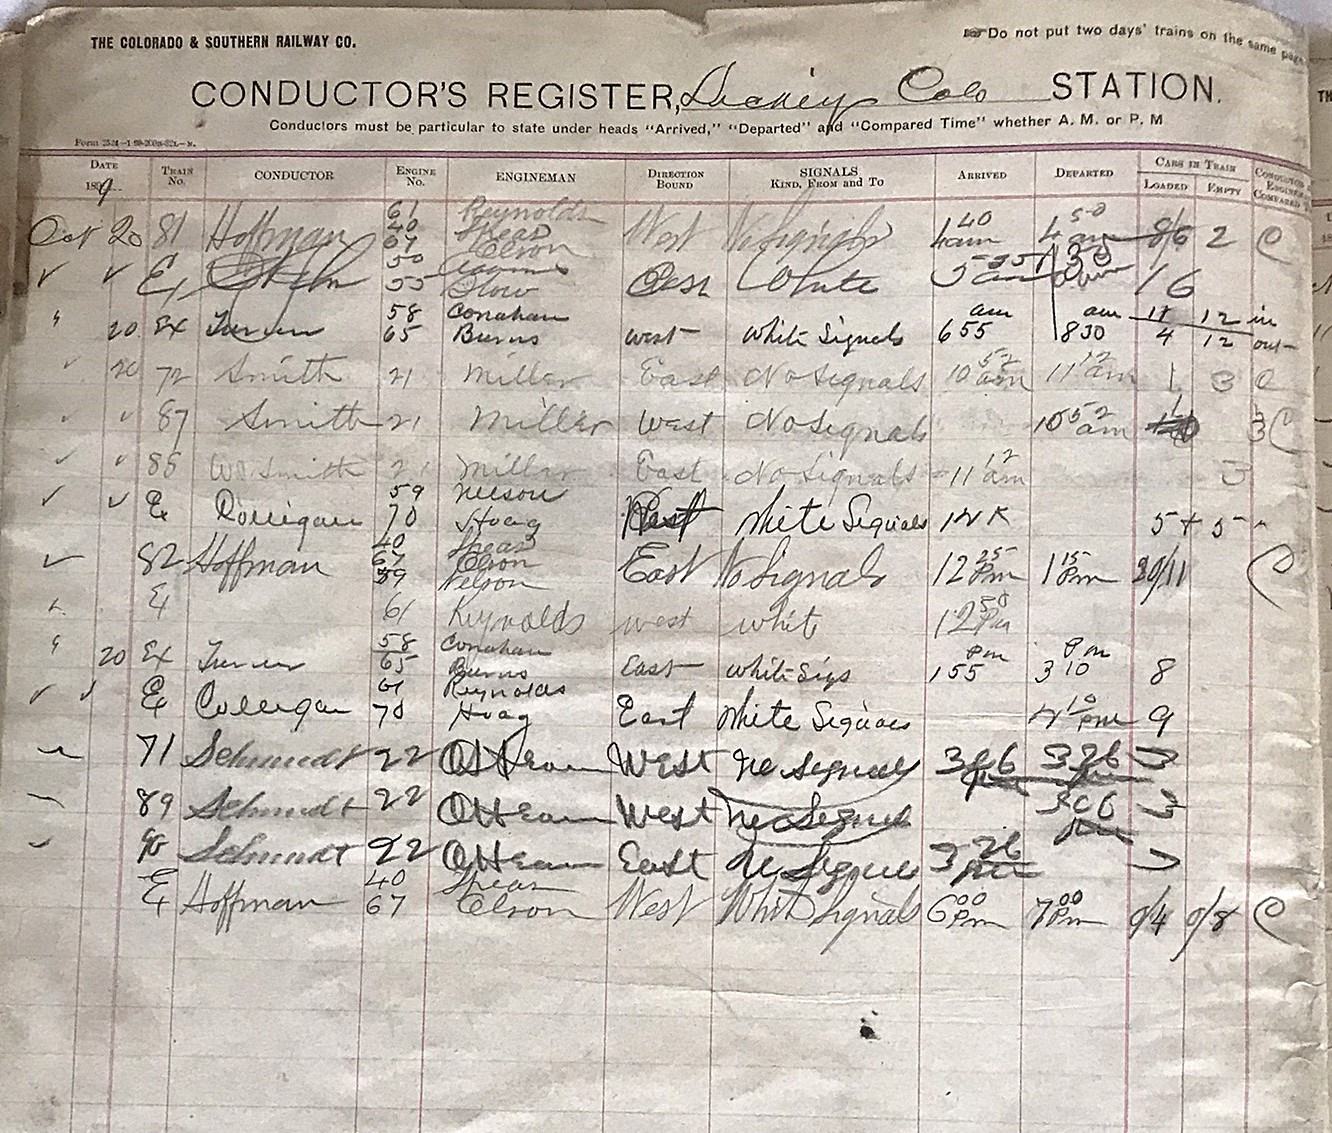 THE COLORADO & SOUTHERN RAILWAY CO.
Do not put two days' trains on the same page
CONDUCTOR'S REGISTER, Dickey Colo STATION.
Conductors must be particular to state under heads "Arrived," "Departed" and "Compared Time" whether A. M. or P. M
DATE 1899 TRAIN No. CONDUCTOR ENGINE No. ENGINEMAN DIRECTION BOUND SIGNALS KIND, FROM and TO ARRIVED DEPARTED CARS IN TRAIN LOADED EMPTY
Oct 20 81 Hoffman 61 40 67 Reynolds Shear Elson West No Signals 4 40 am 4 50 am 8/6 2 C
✓ ✓ Ex 50 55 Stow East White 5 35 am 16
" 20 Ex Turner 58 65 Conahan Burns West White Signals 6 55 am 8 30 am 11 12 in 4 12 out
✓ 20 72 Smith 21 Miller East No Signals 10 52 am 11 12 am 1 3 C
✓ ✓ 87 Smith 21 Miller West No Signals 10 52 am 3 C
✓ ✓ 85 Smith 21 Miller East No Signals 11 12 am 3
✓ ✓ Ex Colligan 59 70 Nelson Hoag White Signals 12 K 5 + 5
✓ 82 Hoffman 40 67 59 Shear Elson Nelson East No Signals 12 25 Pm 1 15 Pm 30/11 C
Ex 61 Reynolds West whit 12 50 Pm
" 20 Ex Turner 58 65 Conahan Burns East White Sigs 1 55 Pm 3 10 Pm 8
✓ ✓ Ex Colligan 61 70 Reynolds Hoag East White Signals 10 Pm 9
71 Schmidt 22 Ottean West No Signals 3 06 Pm 3 26 Pm 3
89 Schmidt 22 Ottean West No Signals 3 06 Pm 3
90 Schmidt 22 Ottean East No Signals 3 26 Pm 3
Ex Hoffman 40 67 Shear Elson West Whit Signals 6 00 Pm 7 00 Pm 0/4 0/8 C